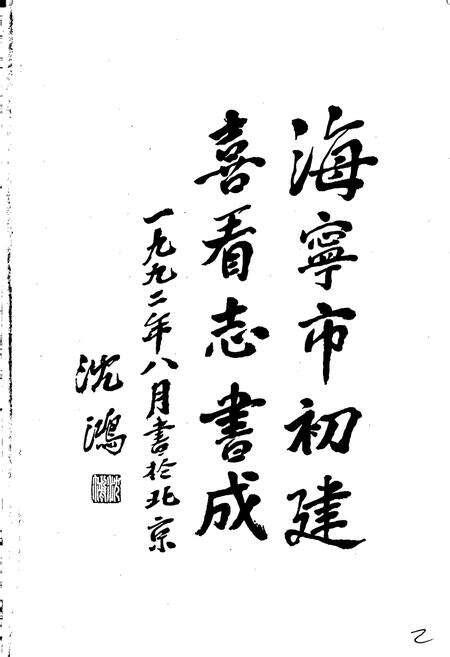 海寧市初建
喜看志書成
一九九二年八月書於北京
沈鴻
乙